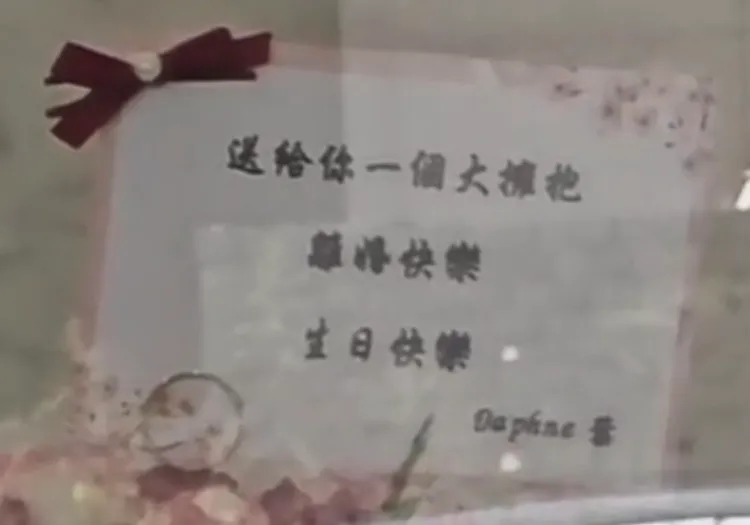 送給你一個大擁抱
離婚快樂
生日快樂
Daphne